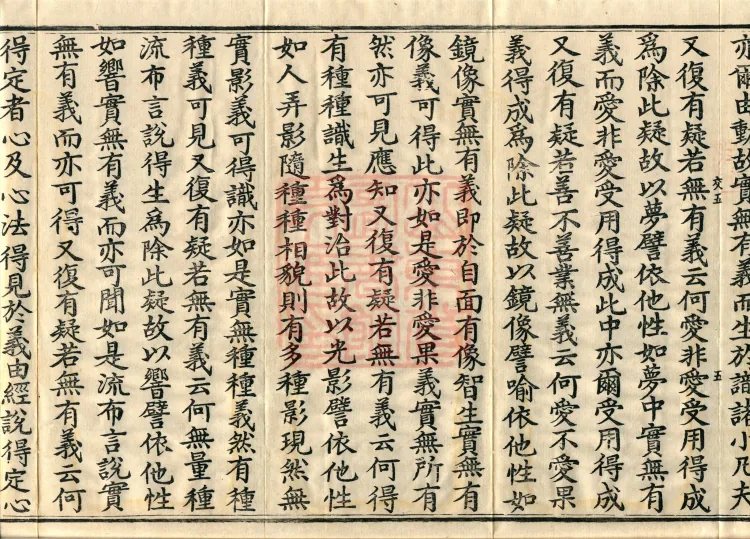 亦爾由動故實無有義而生於謂諸小凡夫
又復有疑若無有義云何愛非愛受用得成
為除此疑故以夢譬依他性如夢中實無有
義而愛非愛受用得成此中亦爾受用得成
又復有疑若善不善業無義云何愛不愛果
義得成為除此疑故以鏡像譬喻依他性如
鏡像實無有義即於自面有像智生實無有
像義可得此亦如是愛非愛果義實無所有
然亦可見應知又復有疑若無有義云何得
有種種識生為對治此故以光影譬依他性
如人弄影隨種種相貌則有多種影現然無
實影義可得識亦如是實無種種義然有種
種義可見又復有疑若無有義云何無量種
流布言說得生為除此疑故以響譬依他性
如響實無有義而亦可聞如是流布言說實
無有義而亦可得又復有疑若無有義云何
得定者心及心法得見於義由經說得定心